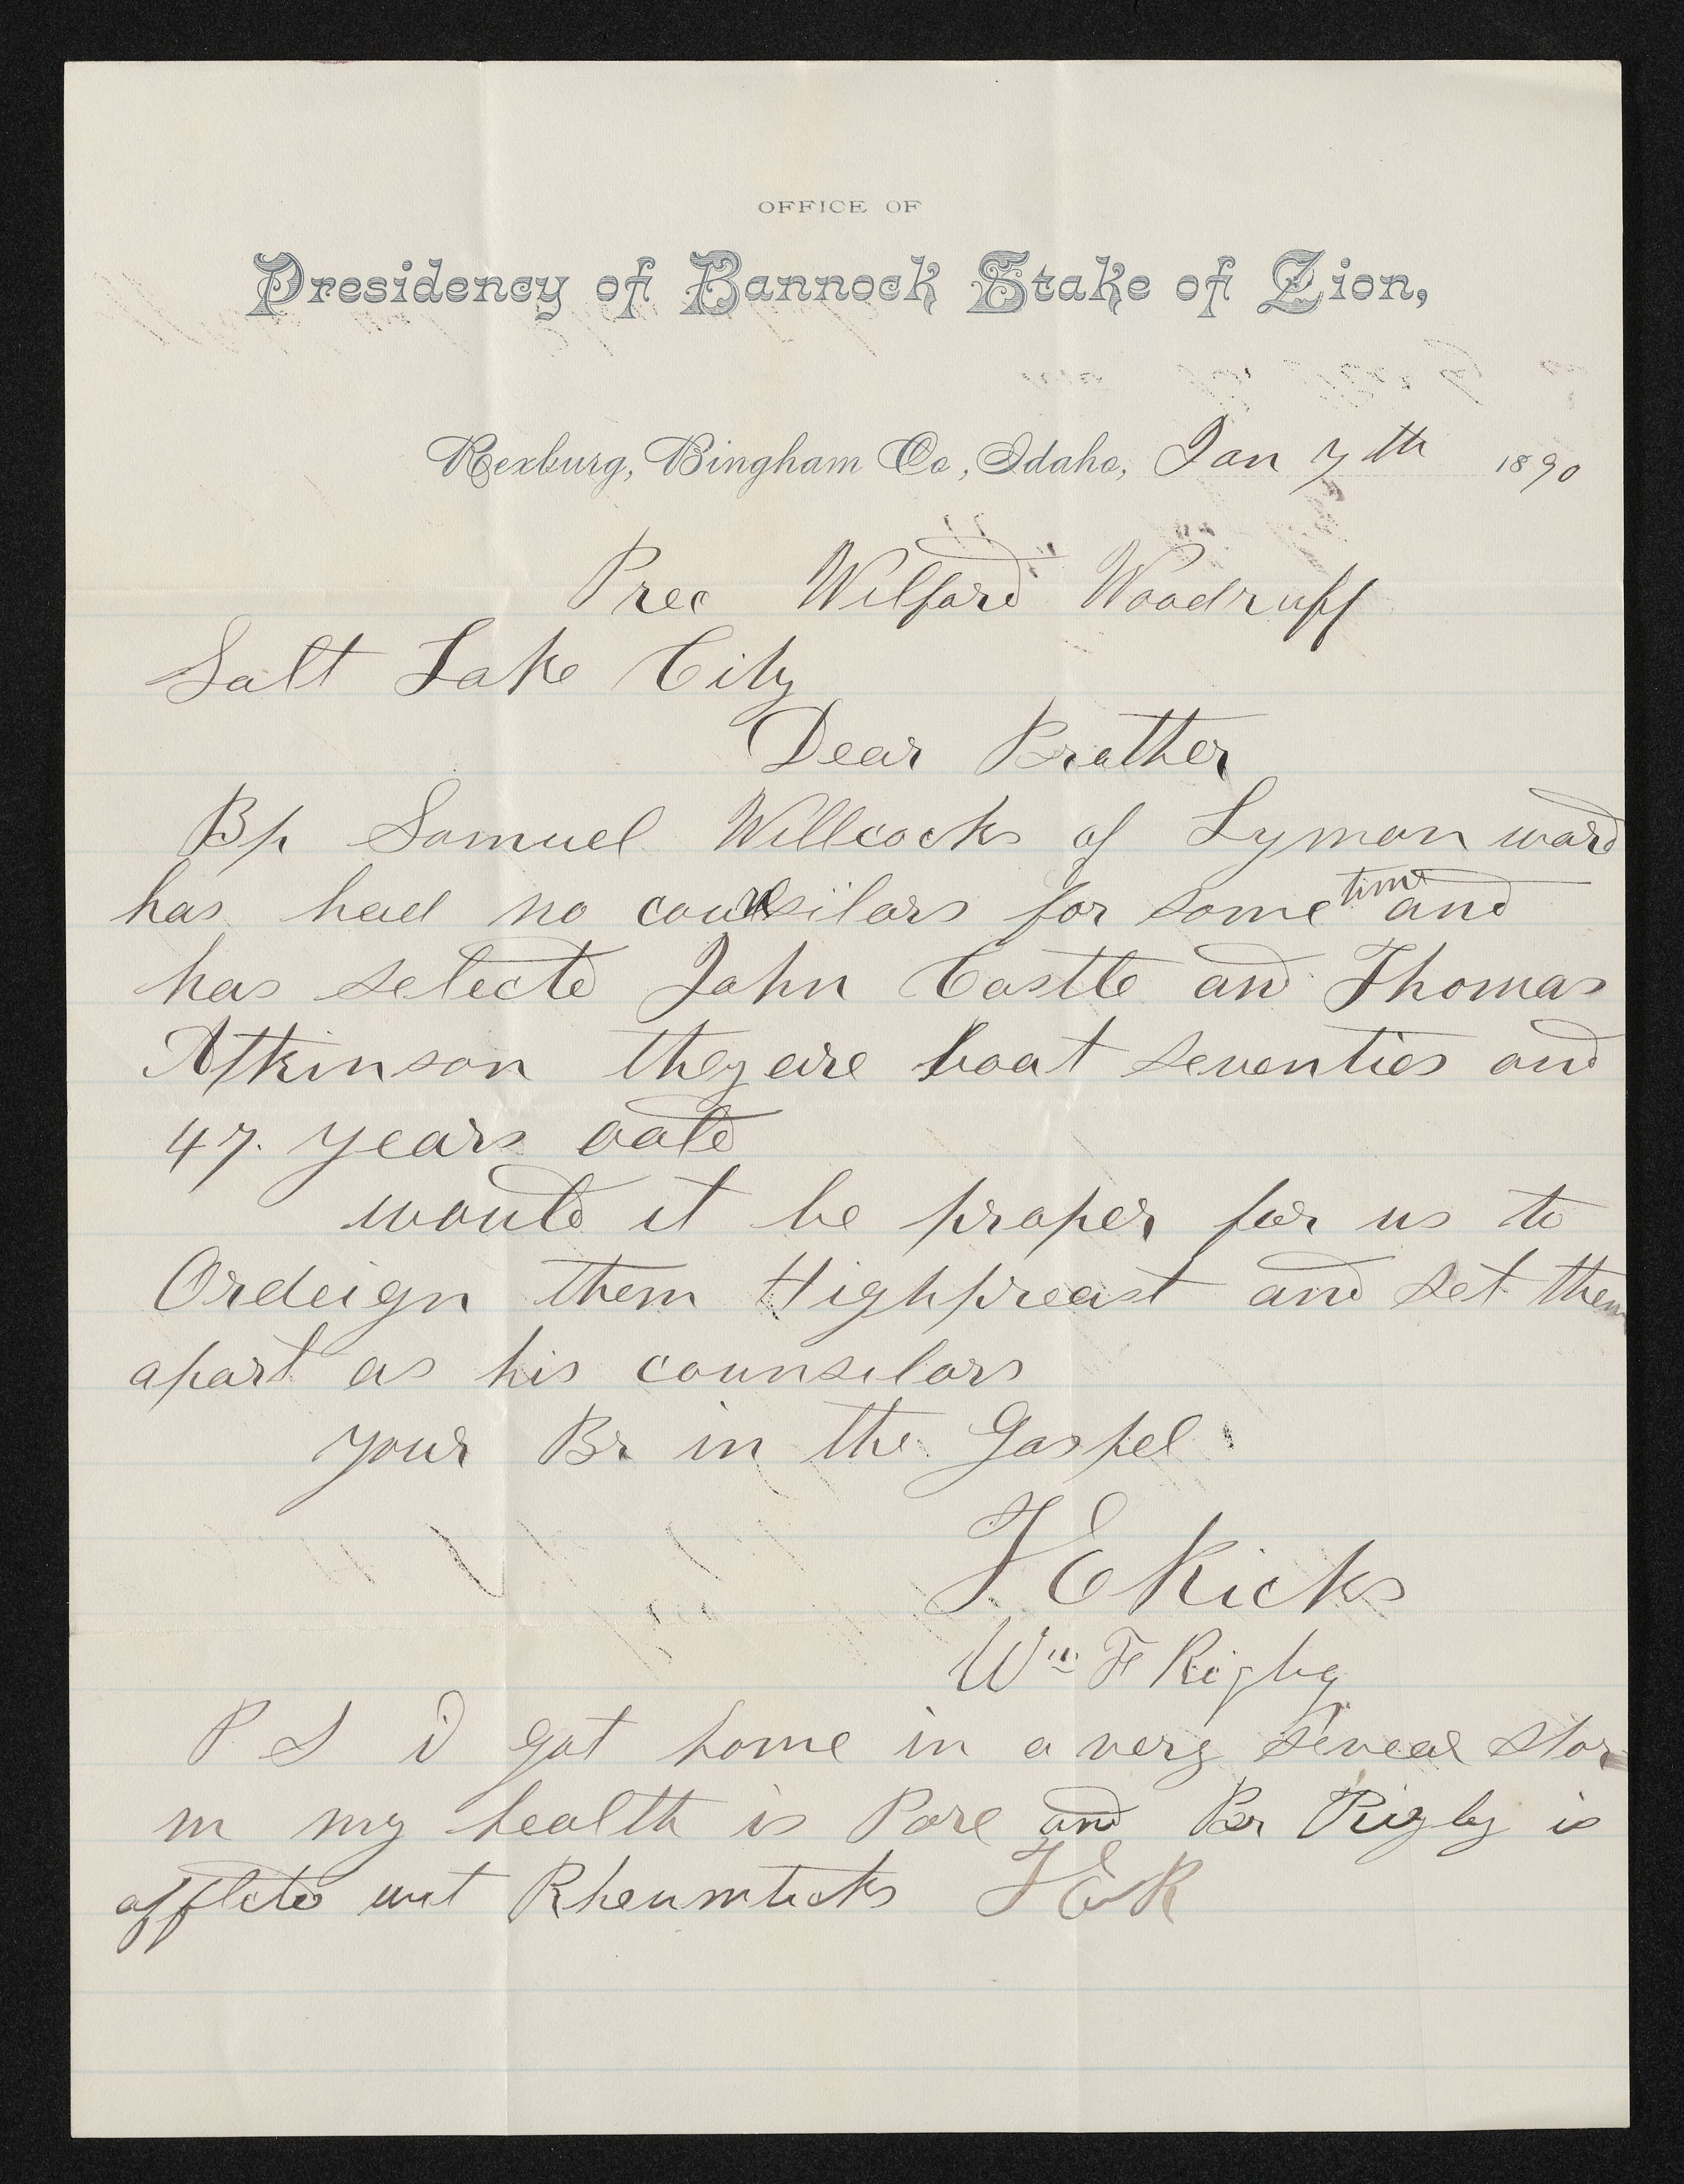 OFFICE OF
Presidency of Bannock Stake of Zion,
Rexburg, Bingham Co., Idaho, Jan 7th 1890
Prec Wilford Woodruff
Salt Lake City
Dear Brother
Bp Samuel Willcocks of Lyman ward
has had no counsilors for some time and
has selected John Castle and Thomas
Atkinson they are boat seventies and
47. years oald
would it be proper for us to
Ordeign them Highpreast and set them
apart as his counsilors
your Br in the Gospel
T E Ricks
Wm F Rigby
P S i got home in a very seveae stor
m my health is Pore and Br Rigby is
afflicted wit Rheumticks T E R